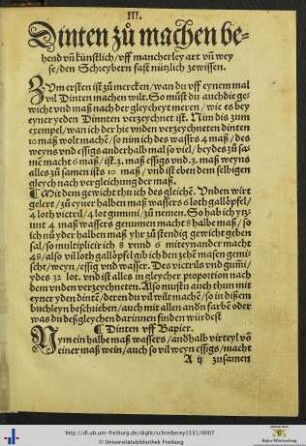 III.
Dinten zů machen be-
hend vñ künstlich / vff mancherley art vñ wey
se / den Schreybern fast nützlich zewissen.
ZVm ersten ist zů mercken / wan du vff eynem mal
vil Dinten machen wilt. So můst du auch die ge
wicht vnd maß nach der gleycheyt meren / wie es bey
eyner yeden Dinnten verzeychnet ist. Nim dis zum
exempel / wan ich der hie vnden verzeychneten dinten
10 maß wolt machẽ / so nim ich des wassers 4 maß / des
weyns vnd essigs anderthalb mal so viel / beydes zů sa-
mẽ macht 6 maß / ist. 3. maß essigs vnd. 3. maß weyns
alles zů samen ists 10 maß / vnd ist eben den selbigen
gleych nach vergleichung der maß.
¶ Mit dem gewicht thů ich des gleichẽ. Vnden wirt
gelert / zů eyner halben maß wassers 6 loth gallöpfel /
4 loth victril / 4 lot gummi / zů nemen. So hab ich ytz-
unt 4 maß wassers genumen macht 8 halbe maß / so
ich nů yder halben maß yhr zů stendig gewicht geben
sal / so multiplicir ich 8 vnnd 6 miteynander macht
48 / also vil loth gallöpfel gib ich den zehẽ masen gemi-
scht / weyn / essig vnd wasser. Des victrils vnd gumi /
ydes 32 lot. vnd ist alles in gleycher proportion nach
dem vnden verzeychneten. Also mustu auch thun mit
eyner yden dintẽ / deren du vil wilt machẽ / so in dißem
buchleyn beschriebẽ / auch mit allen andn farbẽ oder
was du deßgleychen darinnen finden würdest
¶ Dinten vff Bapier.
NYm ein halbe maß wassers / andhalb virteyl võ
einer maß wein / auch so vil weyn essigs / macht
A ij zusamen
http://dl.ub.uni-freiburg.de/diglit/schreiberey1531/0007
© Universitätsbibliothek Freiburg